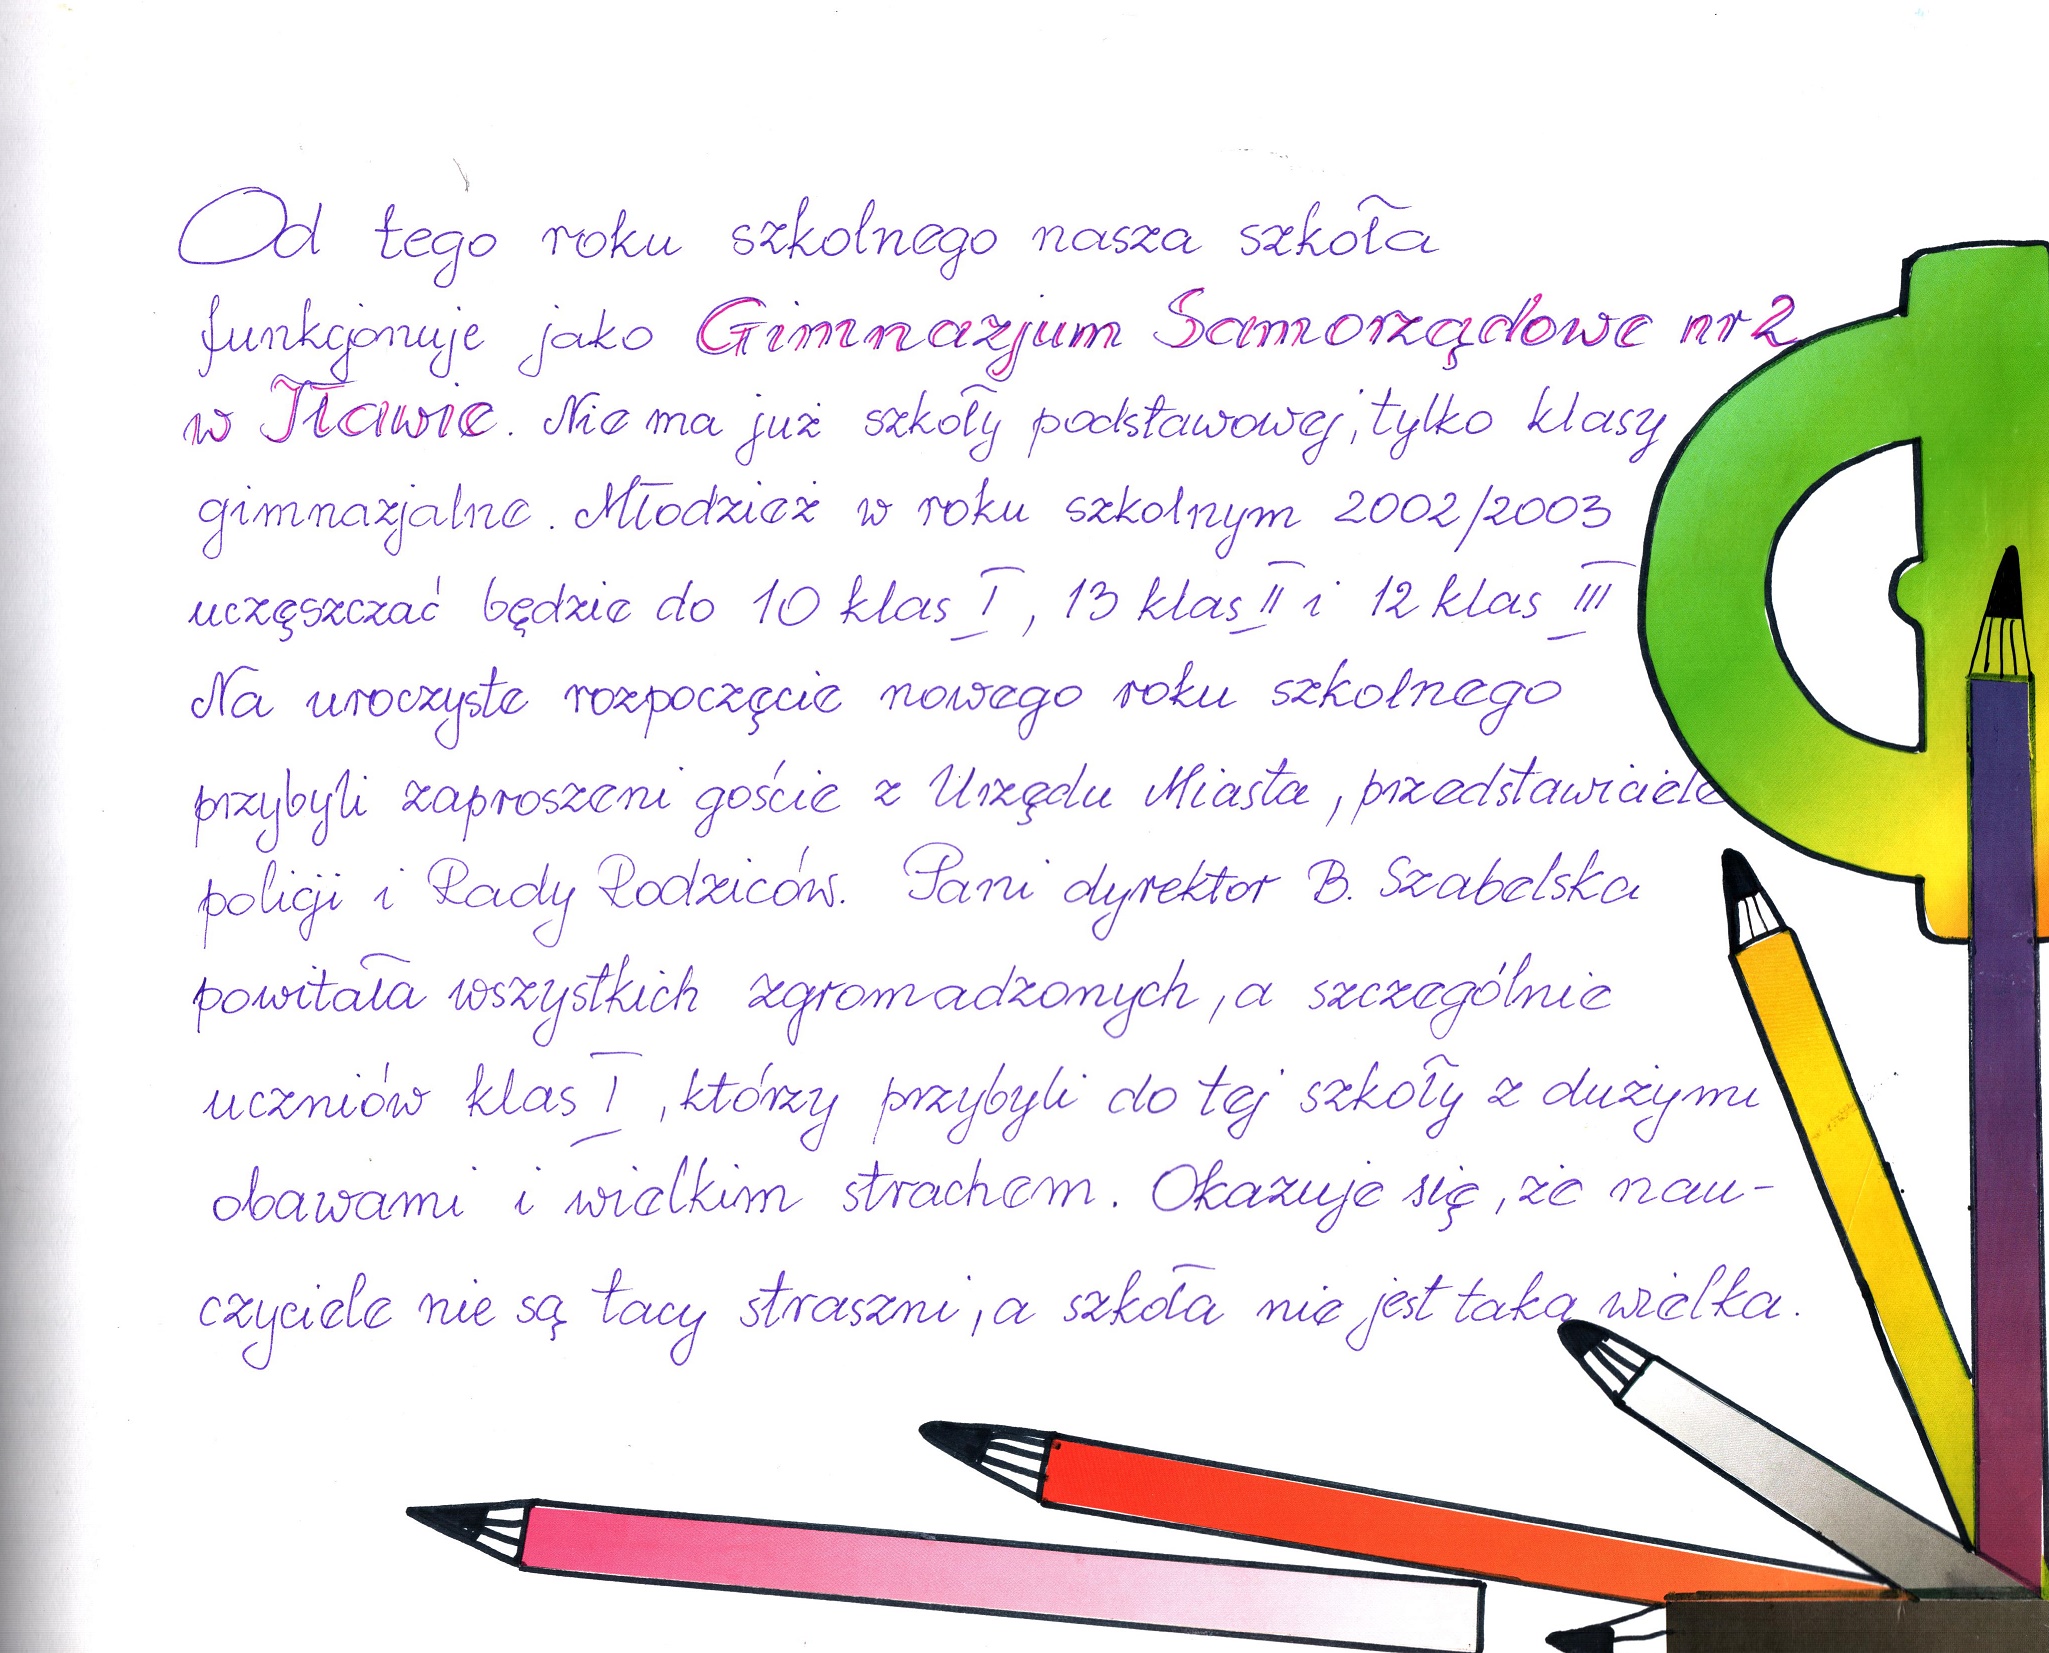 Od tego roku szkolnego nasza szkoła
funkcjonuje jako Gimnazjum Samorządowe nr 2
w Iławie. Nie ma już szkoły podstawowej, tylko klasy
gimnazjalne. Młodzież w roku szkolnym 2002/2003
uczęszczać będzie do 10 klas I, 13 klas II i 12 klas III
Na uroczyste rozpoczęcie nowego roku szkolnego
przybyli zaproszeni goście z Urzędu Miasta, przedstawiciele
policji i Rady Rodziców. Pani dyrektor B. Szabelska
powitała wszystkich zgromadzonych, a szczególnie
uczniów klas I, którzy przybyli do tej szkoły z dużymi
obawami i wielkim strachem. Okazuje się, że nau-
czyciele nie są tacy straszni, a szkoła nie jest taka wielka.